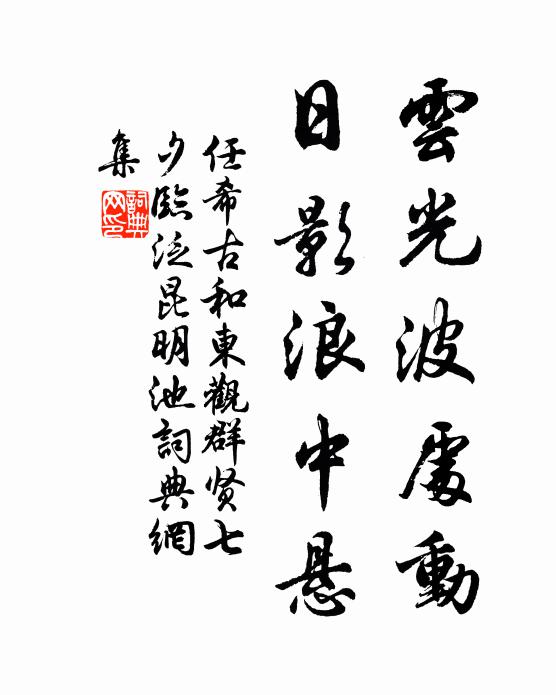 雲光波處動
日影浪中悬
任希古和東觀群贤七
夕臨泛昆明池詞典網
集
詞典
网印